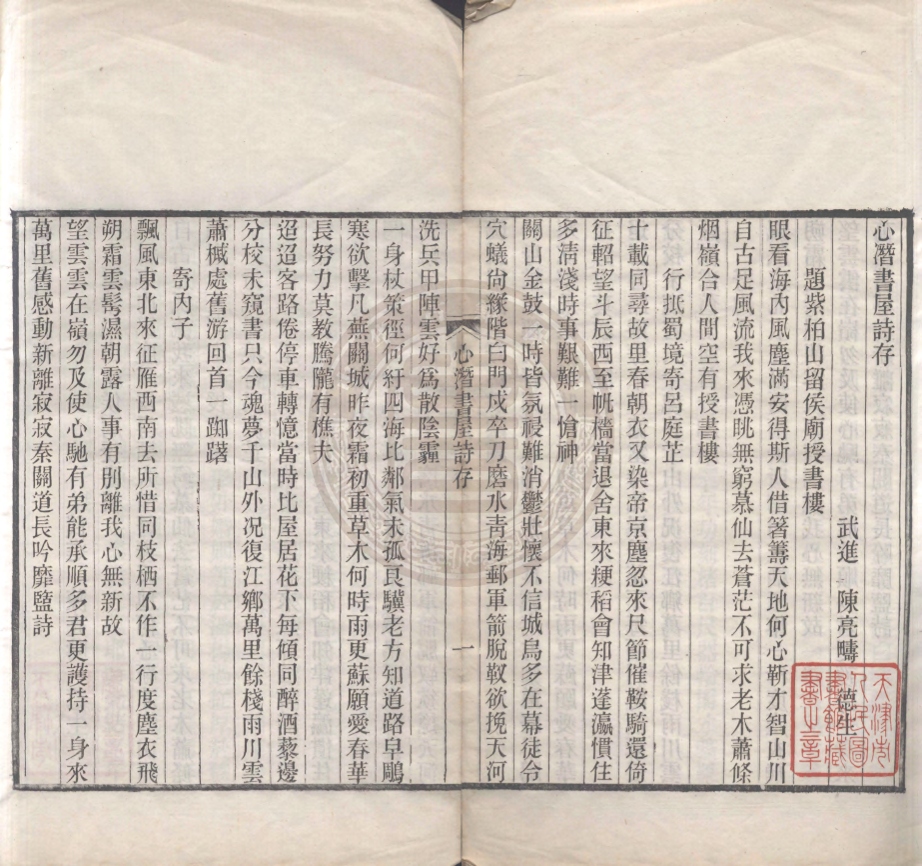 心潛書屋詩存
武進 陳亮疇 德生
題紫柏山留侯廟授書樓
眼看海內風塵滿安得斯人借箸籌天地何心靳才智山川
自古足風流我來憑眺無窮慕仙去蒼茫不可求老木蕭條
烟嶺合人間空有授書樓
行抵蜀境寄呂庭芷
十載同尋故里春朝衣又染帝京塵忽來尺節催鞍騎還倚
征軺望斗辰西至帆檣當退舍東來粳稻會知津蓬瀛慣住
多淸淺時事艱難一愴神
關山金鼓一時皆氛祲難消鬱壯懷不信城烏多在幕徒令
穴蟻尙緣階白門戍卒刀磨水靑海郵軍箭脫靫欲挽天河
洗兵甲陣雲好爲散陰霾
一身杖策徑何紆四海比鄰氣未孤良驥老方知道路皁鵰
寒欲擊凡蕪關城昨夜霜初重草木何時雨更蘇願愛春華
長努力莫教騰隴有樵夫
迢迢客路倦停車轉憶當時比屋居花下每傾同醉酒藜邊
分校未窺書只今魂夢千山外况復江鄉萬里餘棧雨川雲
蕭槭處舊游回首一踟躇
寄內子
飄風東北來征雁西南去所惜同枝栖不作一行度塵衣飛
朔霜雲髩濕朝露人事有別離我心無新故
望雲雲在嶺勿及使心馳有弟能承順多君更護持一身來
萬里舊感動新離寂寂秦關道長吟靡盬詩
心潛書屋詩存
一
天津市
人民圖
書館藏
書之章